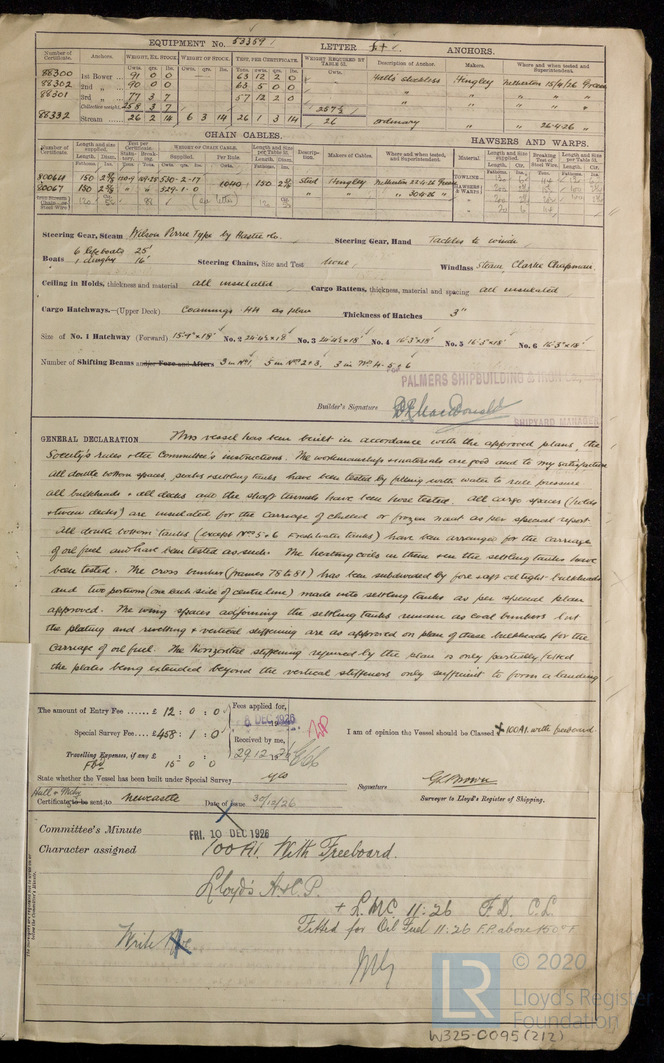 EQUIPMENT No. 53359 LETTER ANCHORS.
Number of Certificate. Anchors. WEIGHT, EX. STOCK. WEIGHT OF STOCK. TEST, PER CERTIFICATE. WEIGHT REQUIRED BY TABLE 31. Description of Anchor. Makers. Where and when tested and Superintendent.
Cwts. qrs. lbs. Cwts. qrs. lbs. Tons. cwts. qrs. lbs. Cwts.
88300 1st Bower 91 0 0 63 12 2 0 Halls stockless Hingley Netherton 15/4/26 Green
88302 2nd " 90 0 0 63 5 0 0 " " " "
88301 3rd " 77 3 7 57 12 2 0 " " " "
Collective weight 258 3 7 257½
88332 Stream 26 2 14 6 3 14 26 1 3 14 26 ordinary " " 26.4.26 "
CHAIN CABLES. HAWSERS AND WARPS.
Number of Certificate. Length and size supplied. Test per Certificate. WEIGHT OF CHAIN CABLE. Length and size per Table 31. Description. Makers of Cables. Where and when tested, and Superintendent. Material Length and Size supplied. Breaking Test of Steel Wire. Length and Size per Table 31.
Fathoms. Diam. Statutory. Breaking. Supplied. Per Rule. Fathoms. Diam.
150 530-2-17 1040 150 stud Hingley Netherton Green TOWLINE
150 529-1-0 " " 30.4.26 " HAWSERS & WARPS
Steering Gear, Steam Wilson Pirrie Type by Hastie & Co. Steering Gear, Hand Tackles to winch
Boats 6 lifeboats 25' 1 dinghy 16' Steering Chains, Size and Test none Windlass Steam Clarke Chapman
Ceiling in Holds, thickness and material all insulated Cargo Battens, thickness, material and spacing all insulated
Cargo Hatchways.—(Upper Deck) Coamings HH as plan Thickness of Hatches 3"
Size of No. 1 Hatchway (Forward) No. 2 24'4½ x 18' No. 3 24'4½ x 18' No. 4 16'3 x 18' No. 5 16'3 x 18' No. 6 16'3 x 18'
Number of Shifting Beams and/or Fore and Afters 3 in No 1, 5 in Nos 2 & 3, 3 in No 4-5 & 6
FOR
PALMERS SHIPBUILDING & IRON
Builder's Signature MacDonald
SHIPYARD MANAGER
GENERAL DECLARATION This vessel has been built in accordance with the approved plans, the
Society's rules & the Committee's instructions. The workmanship & materials are good and to my satisfaction
All double bottom spaces, peaks & settling tanks have been tested by filling with water to rule pressure
all bulkheads & all decks and the shaft tunnels have been hose tested. All cargo spaces (holds
& tween decks) are insulated for the carriage of chilled or frozen meat as per special report.
All double bottom tanks (except Nos 5 & 6 Freshwater tanks) have been arranged for the carriage
of oil fuel and have been tested as such. The heating coils in them & in the settling tanks have
been tested. The cross bunker (frames 78 to 81) has been subdivided by fore & aft oil tight bulkheads
and two portions (one each side of centre line) made into settling tanks as per special plan
approved. The wing spaces adjoining the settling tanks remain as coal bunkers but
the plating and rivetting & vertical stiffening are as approved on plan of these bulkheads for the
carriage of oil fuel. The horizontal stiffening required by the plan is only partially fitted
the plates being extended beyond the vertical stiffeners only sufficient to form a landing
The amount of Entry Fee ...... £ 12 : 0 : 0
Fees applied for,
8 DEC 1926
Special Survey Fee .... £458 : 1 : 0
Received by me,
29.12.1926
I am of opinion the Vessel should be Classed +100A1. with freeboard
Travelling Expenses, if any £ : :
Fbd 15 : 0 : 0
State whether the Vessel has been built under Special Survey yes
Signature
Surveyor to Lloyd's Register of Shipping.
Certificate to be sent to Newcastle Date of issue 30/12/26
Committee's Minute FRI. 10 DEC 1926
Character assigned 100A1. With Freeboard.
Lloyd's A & C. P.
+ LMC 11:26 F.D. C.L.
Fitted for Oil Fuel 11:26 F.P. above 150°F.
Write
© 2020
LR Lloyd's Register
Foundation
W325-0095 (2/2)